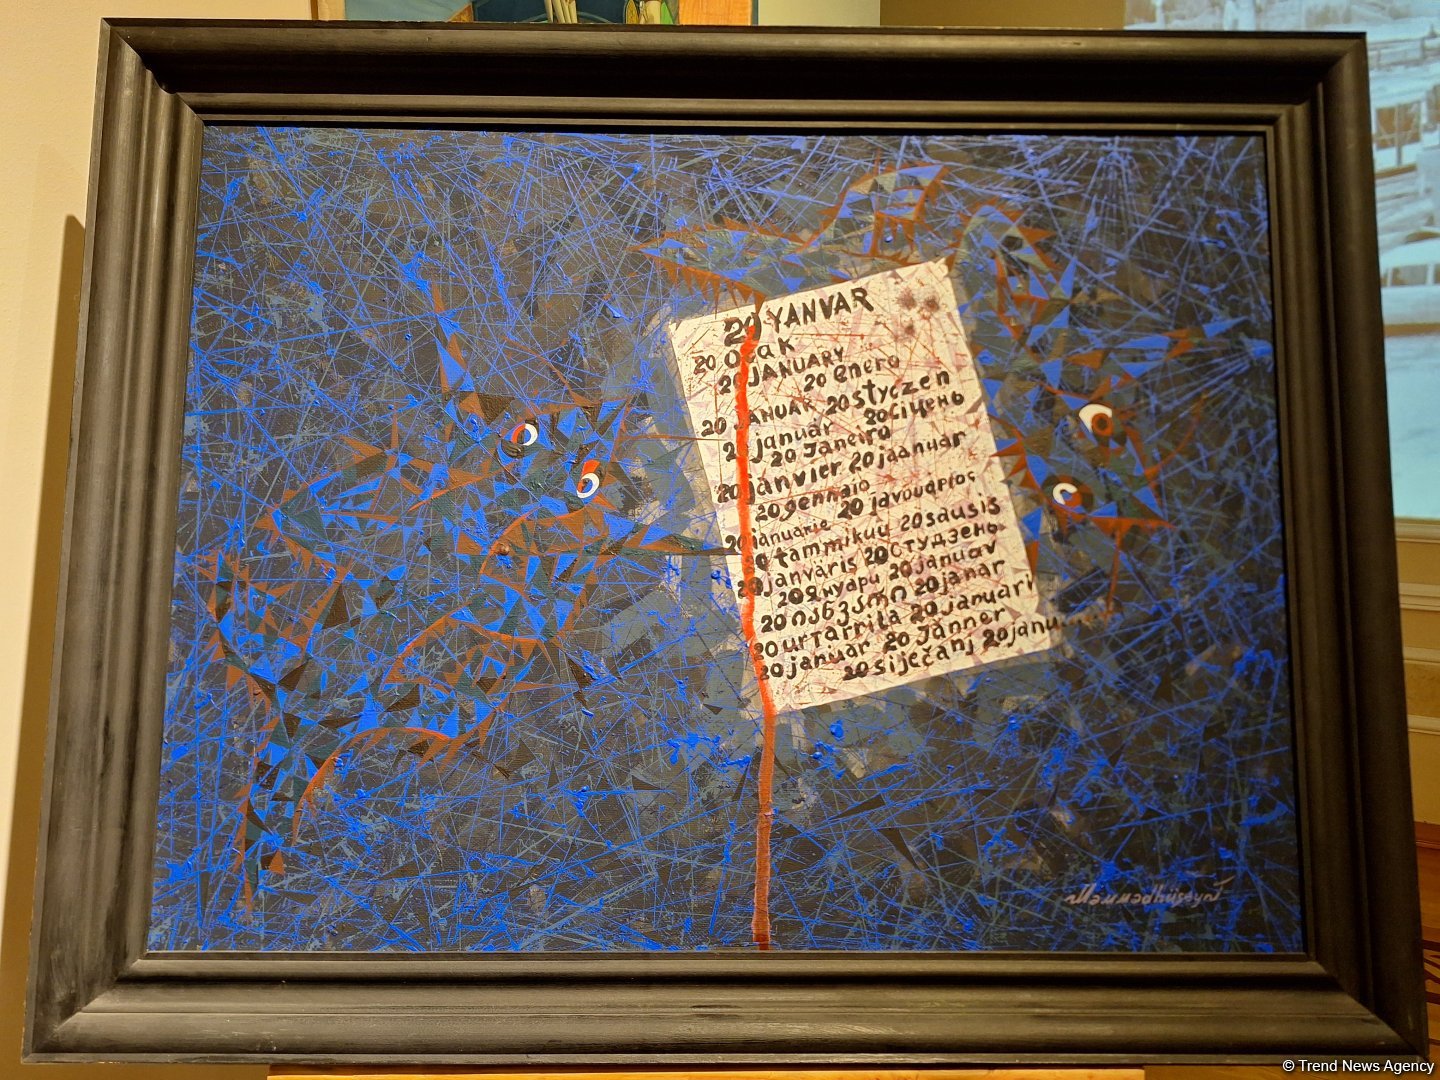 20 YANVAR
20 Ocak
20 JANUARY
20 enero
20 JANUAR 20 styczen
20 januar 20 січень
20 Janeiro
20 janvier 20 jaanuar
20 gennaio
20 ianuarie 20 ιανουάριος
20 tammikuu 20 sausis
20 janvāris 20 Студзень
20 януари 20 januar
20 იანვარი 20 janar
20 urtarrila 20 januari
20 januar 20 Jänner
20 siječanj 20 janu
Məmmədhüseyn
© Trend News Agency